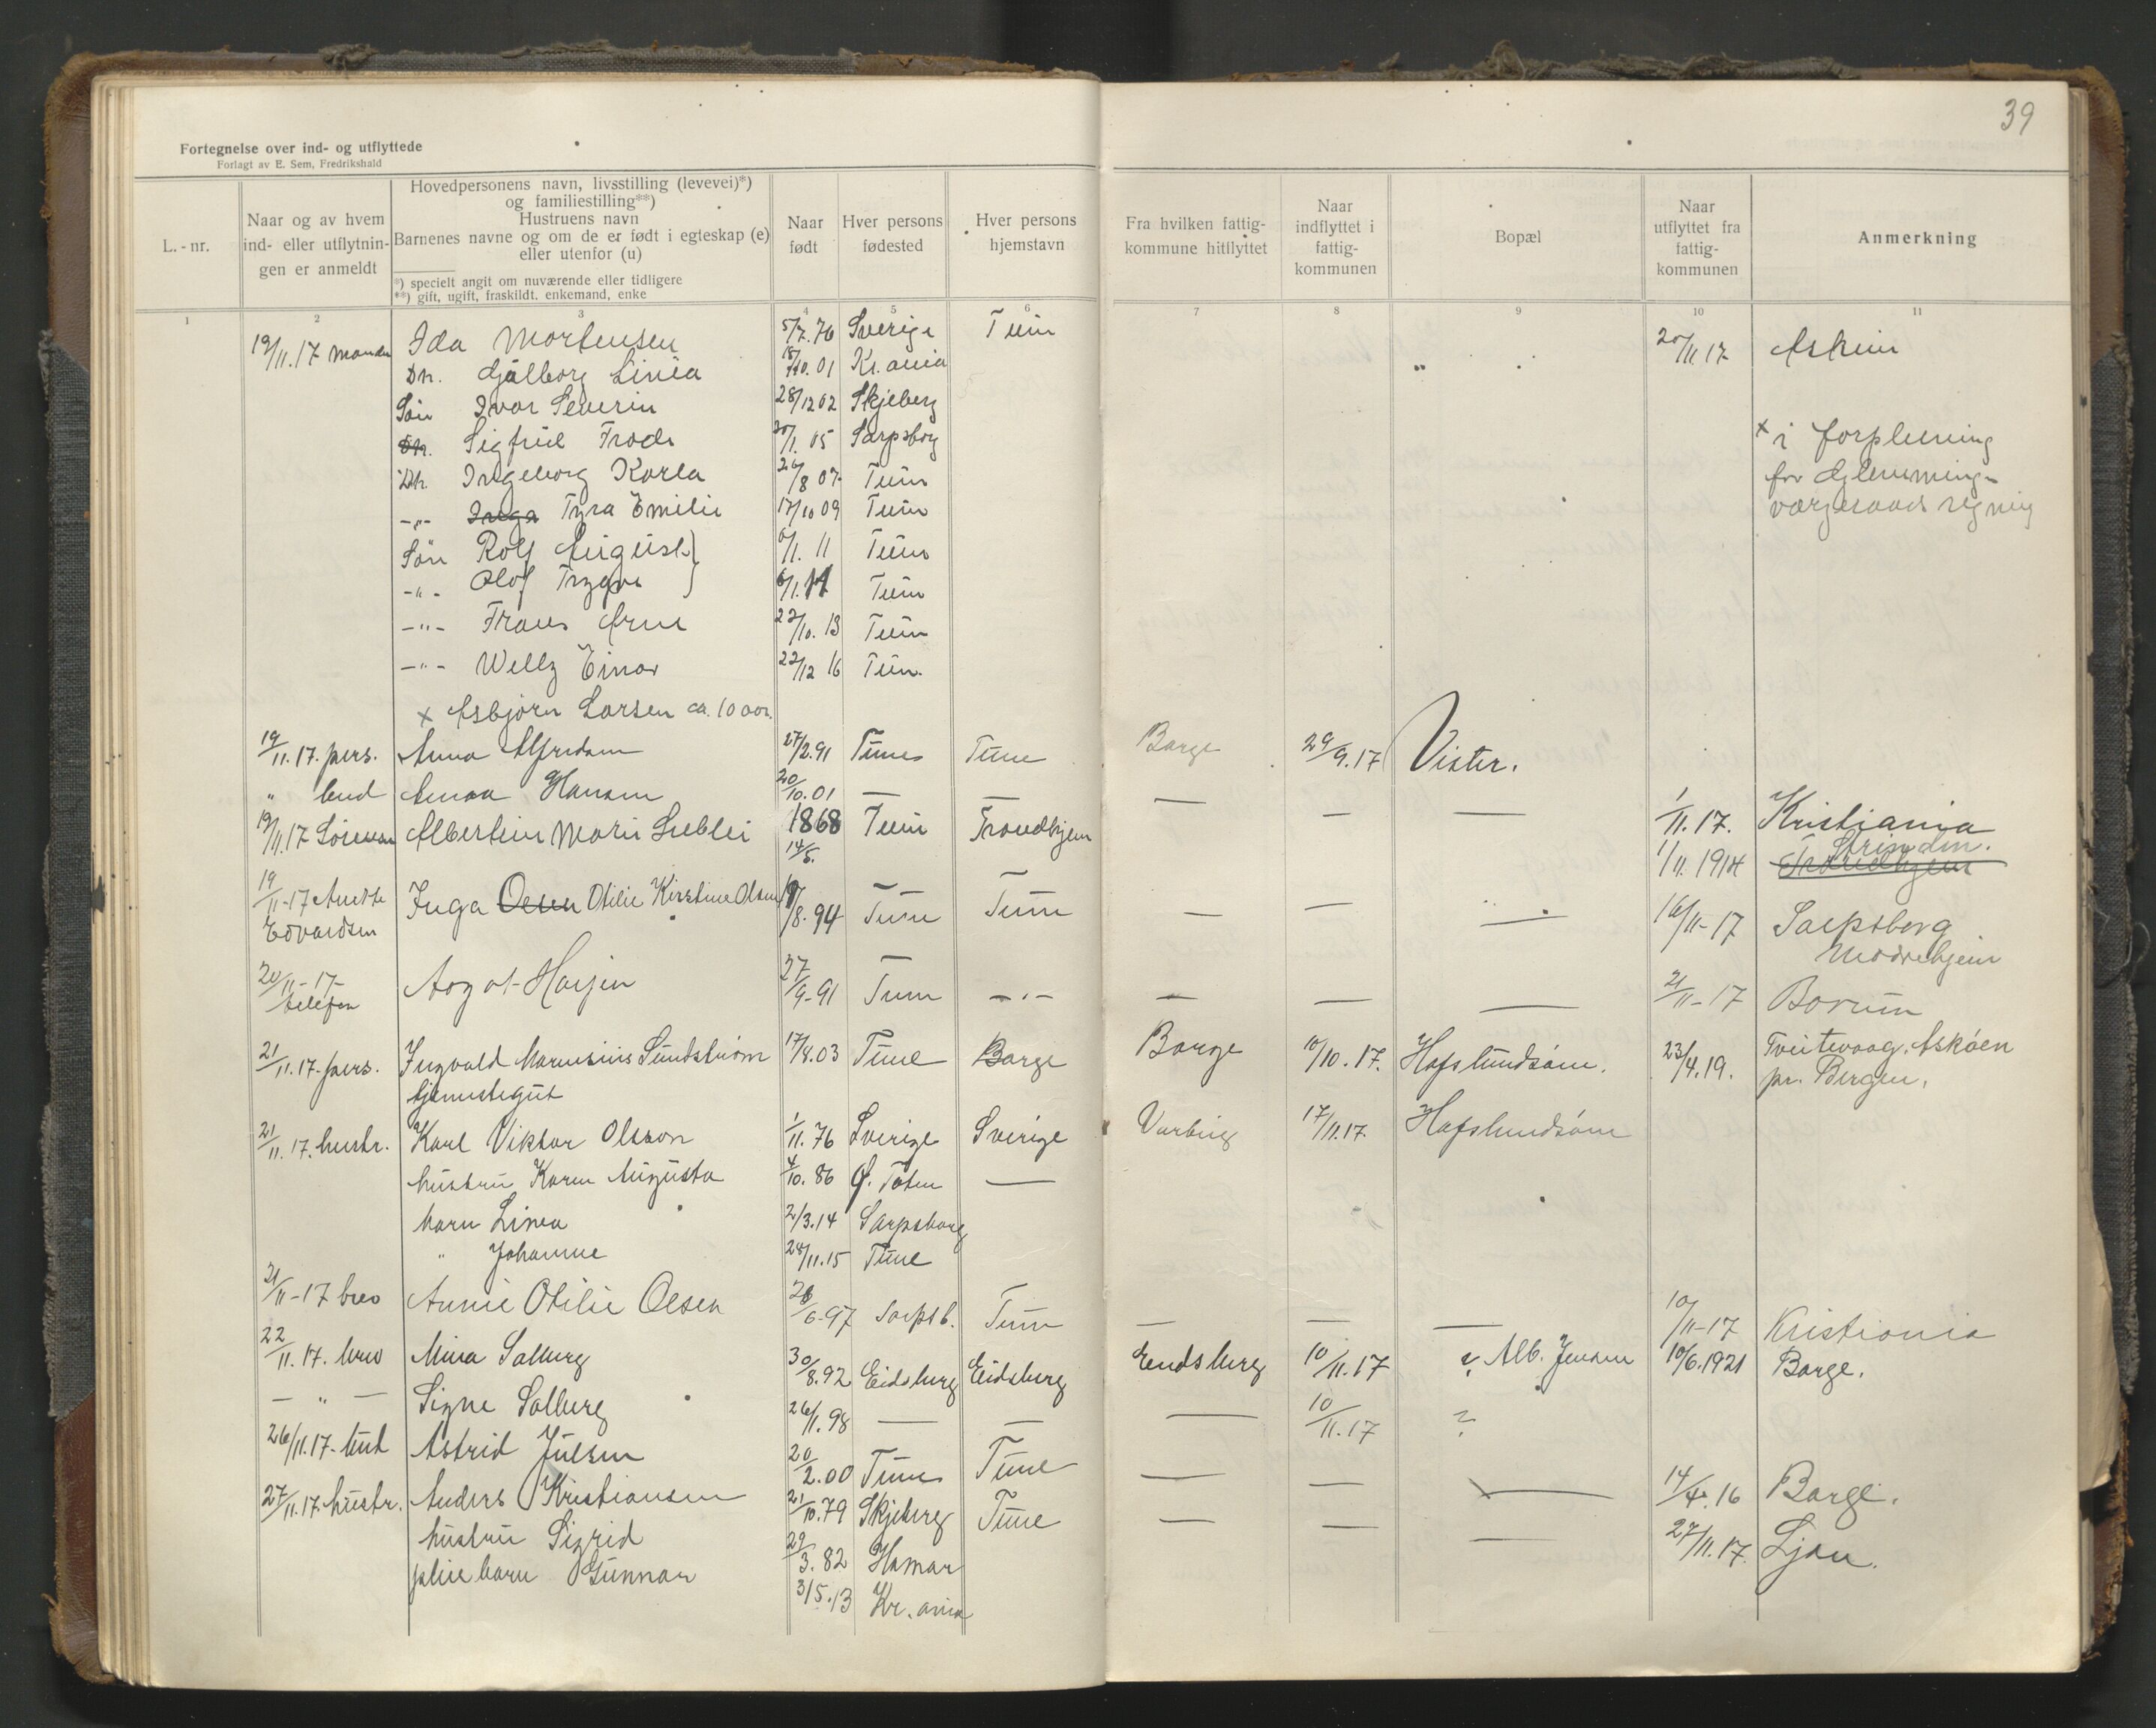 39
Fortegnelse over ind- og utflyttede
Forlagt av E. Sem, Fredrikshald
L.-nr.
Naar og av hvem
ind- eller utflytnin-
gen er anmeldt
Hovedpersonens navn, livsstilling (levevei)*)
og familiestilling**)
Hustruens navn
Barnenes navne og om de er født i egteskap (e)
eller utenfor (u)
*) specielt angit om nuværende eller tidligere
**) gift, ugift, fraskildt, enkemand, enke
Naar
født
Hver persons
fødested
Hver persons
hjemstavn
Fra hvilken fattig-
kommune hitflyttet
Naar
indflyttet i
fattig-
kommunen
Bopæl
Naar
utflyttet fra
fattig-
kommunen
Anmerkning
1 2 3 4 5 6 7 8 9 10 11
19/11.17 Ida Mortensen 5/7.76 Sverige Tune 20/11 17 Askim
Dn. Linéa 18/10.01 Kr.ania
Søn Ivar Severin 28/12 02 Skjeberg
Dn. Sigfried Frode 20/1. 05 Sarpsborg x i forpleining
Dn. Ingeborg Karla 26/8 07 Tune for Glemming-
-"- Inga Tyra Emilie 17/10 09 Tune værgeraads regning
Søn Rolf August } 6/1. 11 Tune
-"- Olof Trygve } 6/1. 11 Tune
-"- Frans Arne 22/10. 13 Tune
-"- Willy Einar 22/12 16 Tune.
x Asbjørn Larsen ca. 10 aar.
19/11.17. pers. Anna Alfredsen 27/2.91 Tune Tune Borge 29/9.17 Vister.
" bud Anna Hansen 20/10.01 — — — — — 1/11.17. Kristiania
19/11.17 Sørensen Albertine Marie Lublei 1868 14/5. Tune Trondhjem 1/11. 1914 Trondhjem Strinden.
19/11-17 Anette Edvardsen Inga Olsen Otilie Kirstine Olsen /8.94 Tune Tune — — — 16/11-17 Sarpsborg
Mødrehjem
20/11-17- telefon 27/9-91 Tune -"- — — — 21/11-17 Borum
21/11.17. pers. Ingvald Marensius Sundstrøm 17/8.03 Tune Borge Borge 10/10.17. Hafslundsøen. 23/4.19. Tveitevaag, Askøen
tjenestegut pr. Bergen.
21/11.17. hustr. Karl Viktor Olsson 1/11.76 Sverige Sverige Varteig 17/11.17. Hafslundsøen
hustru Karen Augusta 4/10.86 Ø. Toten —
barn Linea 2/3.14 Sarpsborg
" Johanne 24/11.15 Tune
21/11-17 brev Annie Otilie Olsen 26/6-97 Sarpsb. Tune — — — 10/11-17 Kristiania
22/11.17. brev Mina Solberg 30/8.92 Eidsberg Eidsberg Eidsberg 10/11.17 ? Alb. Jensen 10/6.1921 Borge.
— " — Signe Solberg 26/1.98 — — — 10/11.17 ?
26/11.17- bud Astrid Julsen 20/2.00 Tune Tune — — — 14/4.16 Borge.
27/11.17. hustr. Anders Kristiansen 21/10.79 Skjeberg Tune — — — 27/11.17. Ljan.
hustru Sigrid 29/3.82 Hamar
pleiebarn Gunnar 3/5.13 Kr.ania